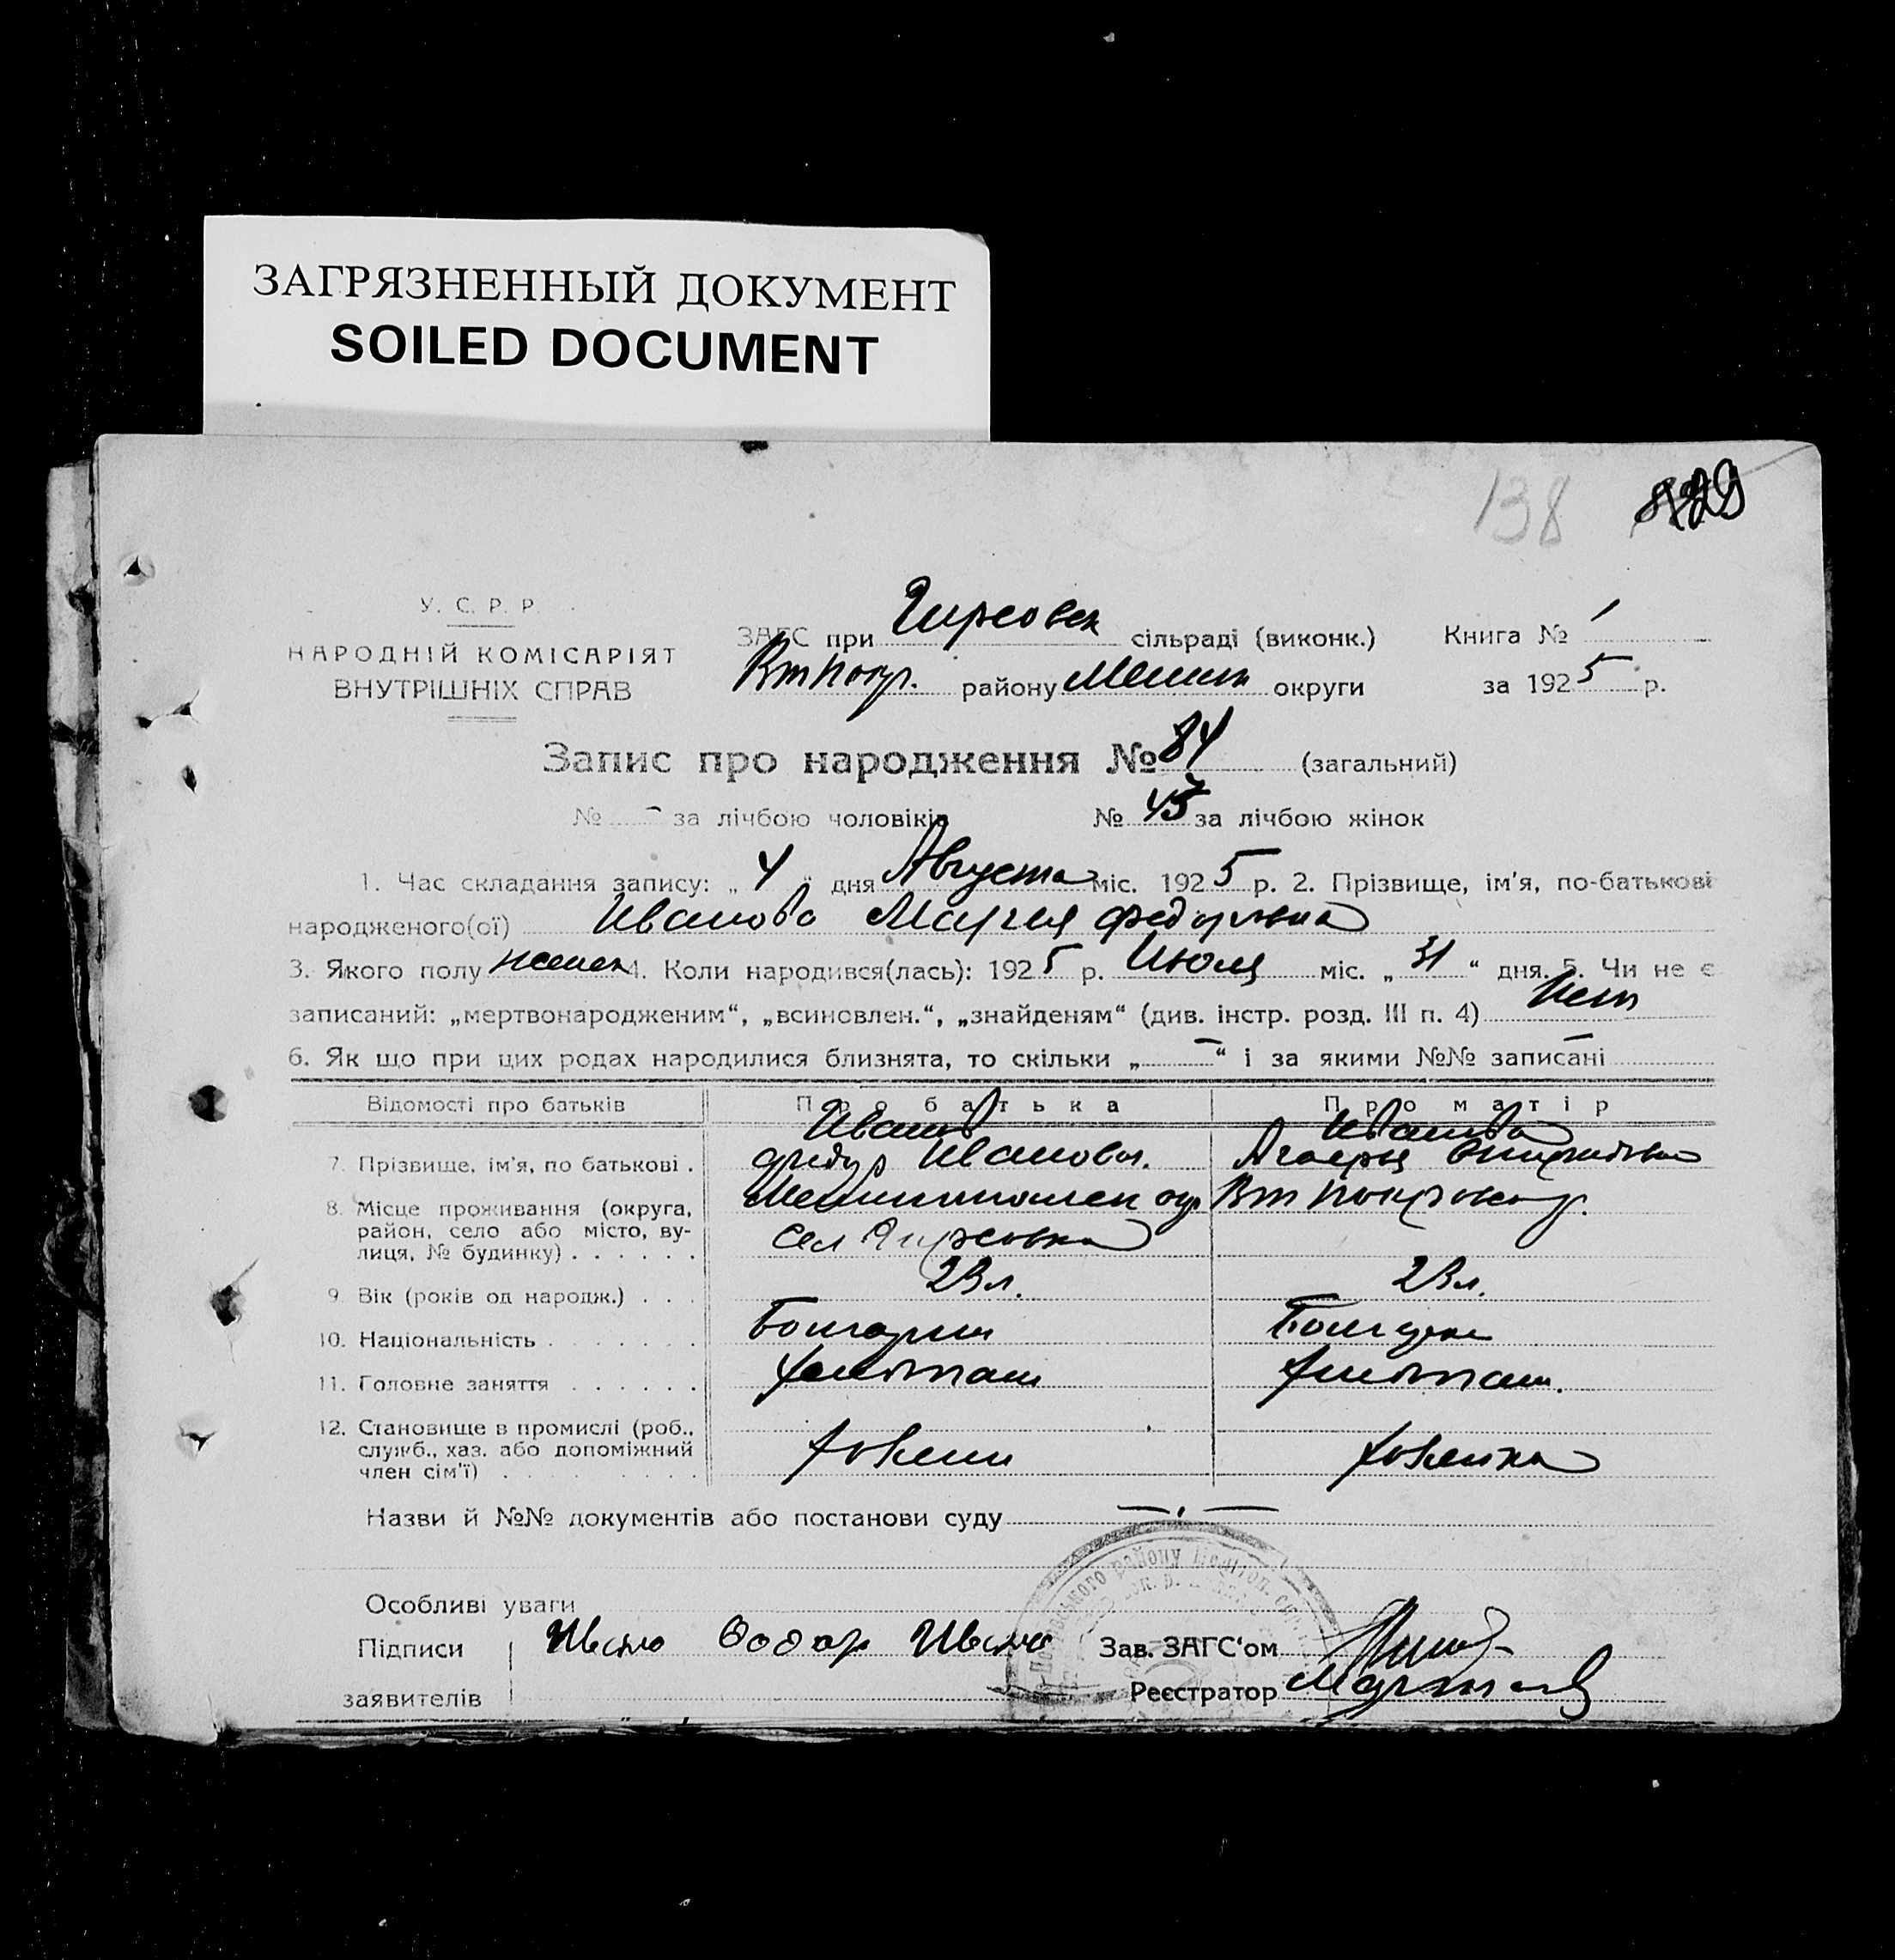 ЗАГРЯЗНЕННЫЙ ДОКУМЕНТ
SOILED DOCUMENT
138
У. С. Р. Р.
НАРОДНІЙ КОМІСАРІЯТ
ВНУТРІШНІХ СПРАВ
ЗАГС при Гирсовск сільраді (виконк.) Книга № 1
Втпокр. району Мелит округи за 1925 р.
Запис про народження № 84 (загальний)
№ - за лічбою чоловіків № 45 за лічбою жінок
1. Час складання запису: „ 4 “ дня Августа міс. 1925 р. 2. Прізвище, ім'я, по-батькові
народженого(ої) Иванова Мария Федоровна
3. Якого полу женск 4. Коли народився(лась): 1925 р. Июля міс. „ 31 “ дня. 5. Чи не є
записаний: „мертвонародженим“, „всиновлен.“, „знайденям“ (див. інстр. розд. III п. 4) Нет
6. Як що при цих родах народилися близнята, то скільки „ — “ і за якими №№ записані —
Відомості про батьків Про батька Про матір
Иванов Иванова
7. Прізвище, ім'я, по батькові . Федор Иванов.
8. Місце проживання (округа, Мелитопольск окр Вт Покровск р.
район, село або місто, ву-
лиця, № будинку) . . . . . . сел Гирсовка
9. Вік (років од народж.) . . . 23 л. 23 л.
10. Національність . . . . . . . Болгарин Болгарка
11. Головне заняття . . . . . . хлебопаш хлебопаш.
12. Становище в промислі (роб.,
служб., хаз. або допоміжний хозяин хозяйка
член сім'ї) . . . . . . . . .
Назви й №№ документів або постанови суду — . —
Особливі уваги
Підписи Ивано Фодор Ивано Зав. ЗАГС'ом
заявителів Реєстратор